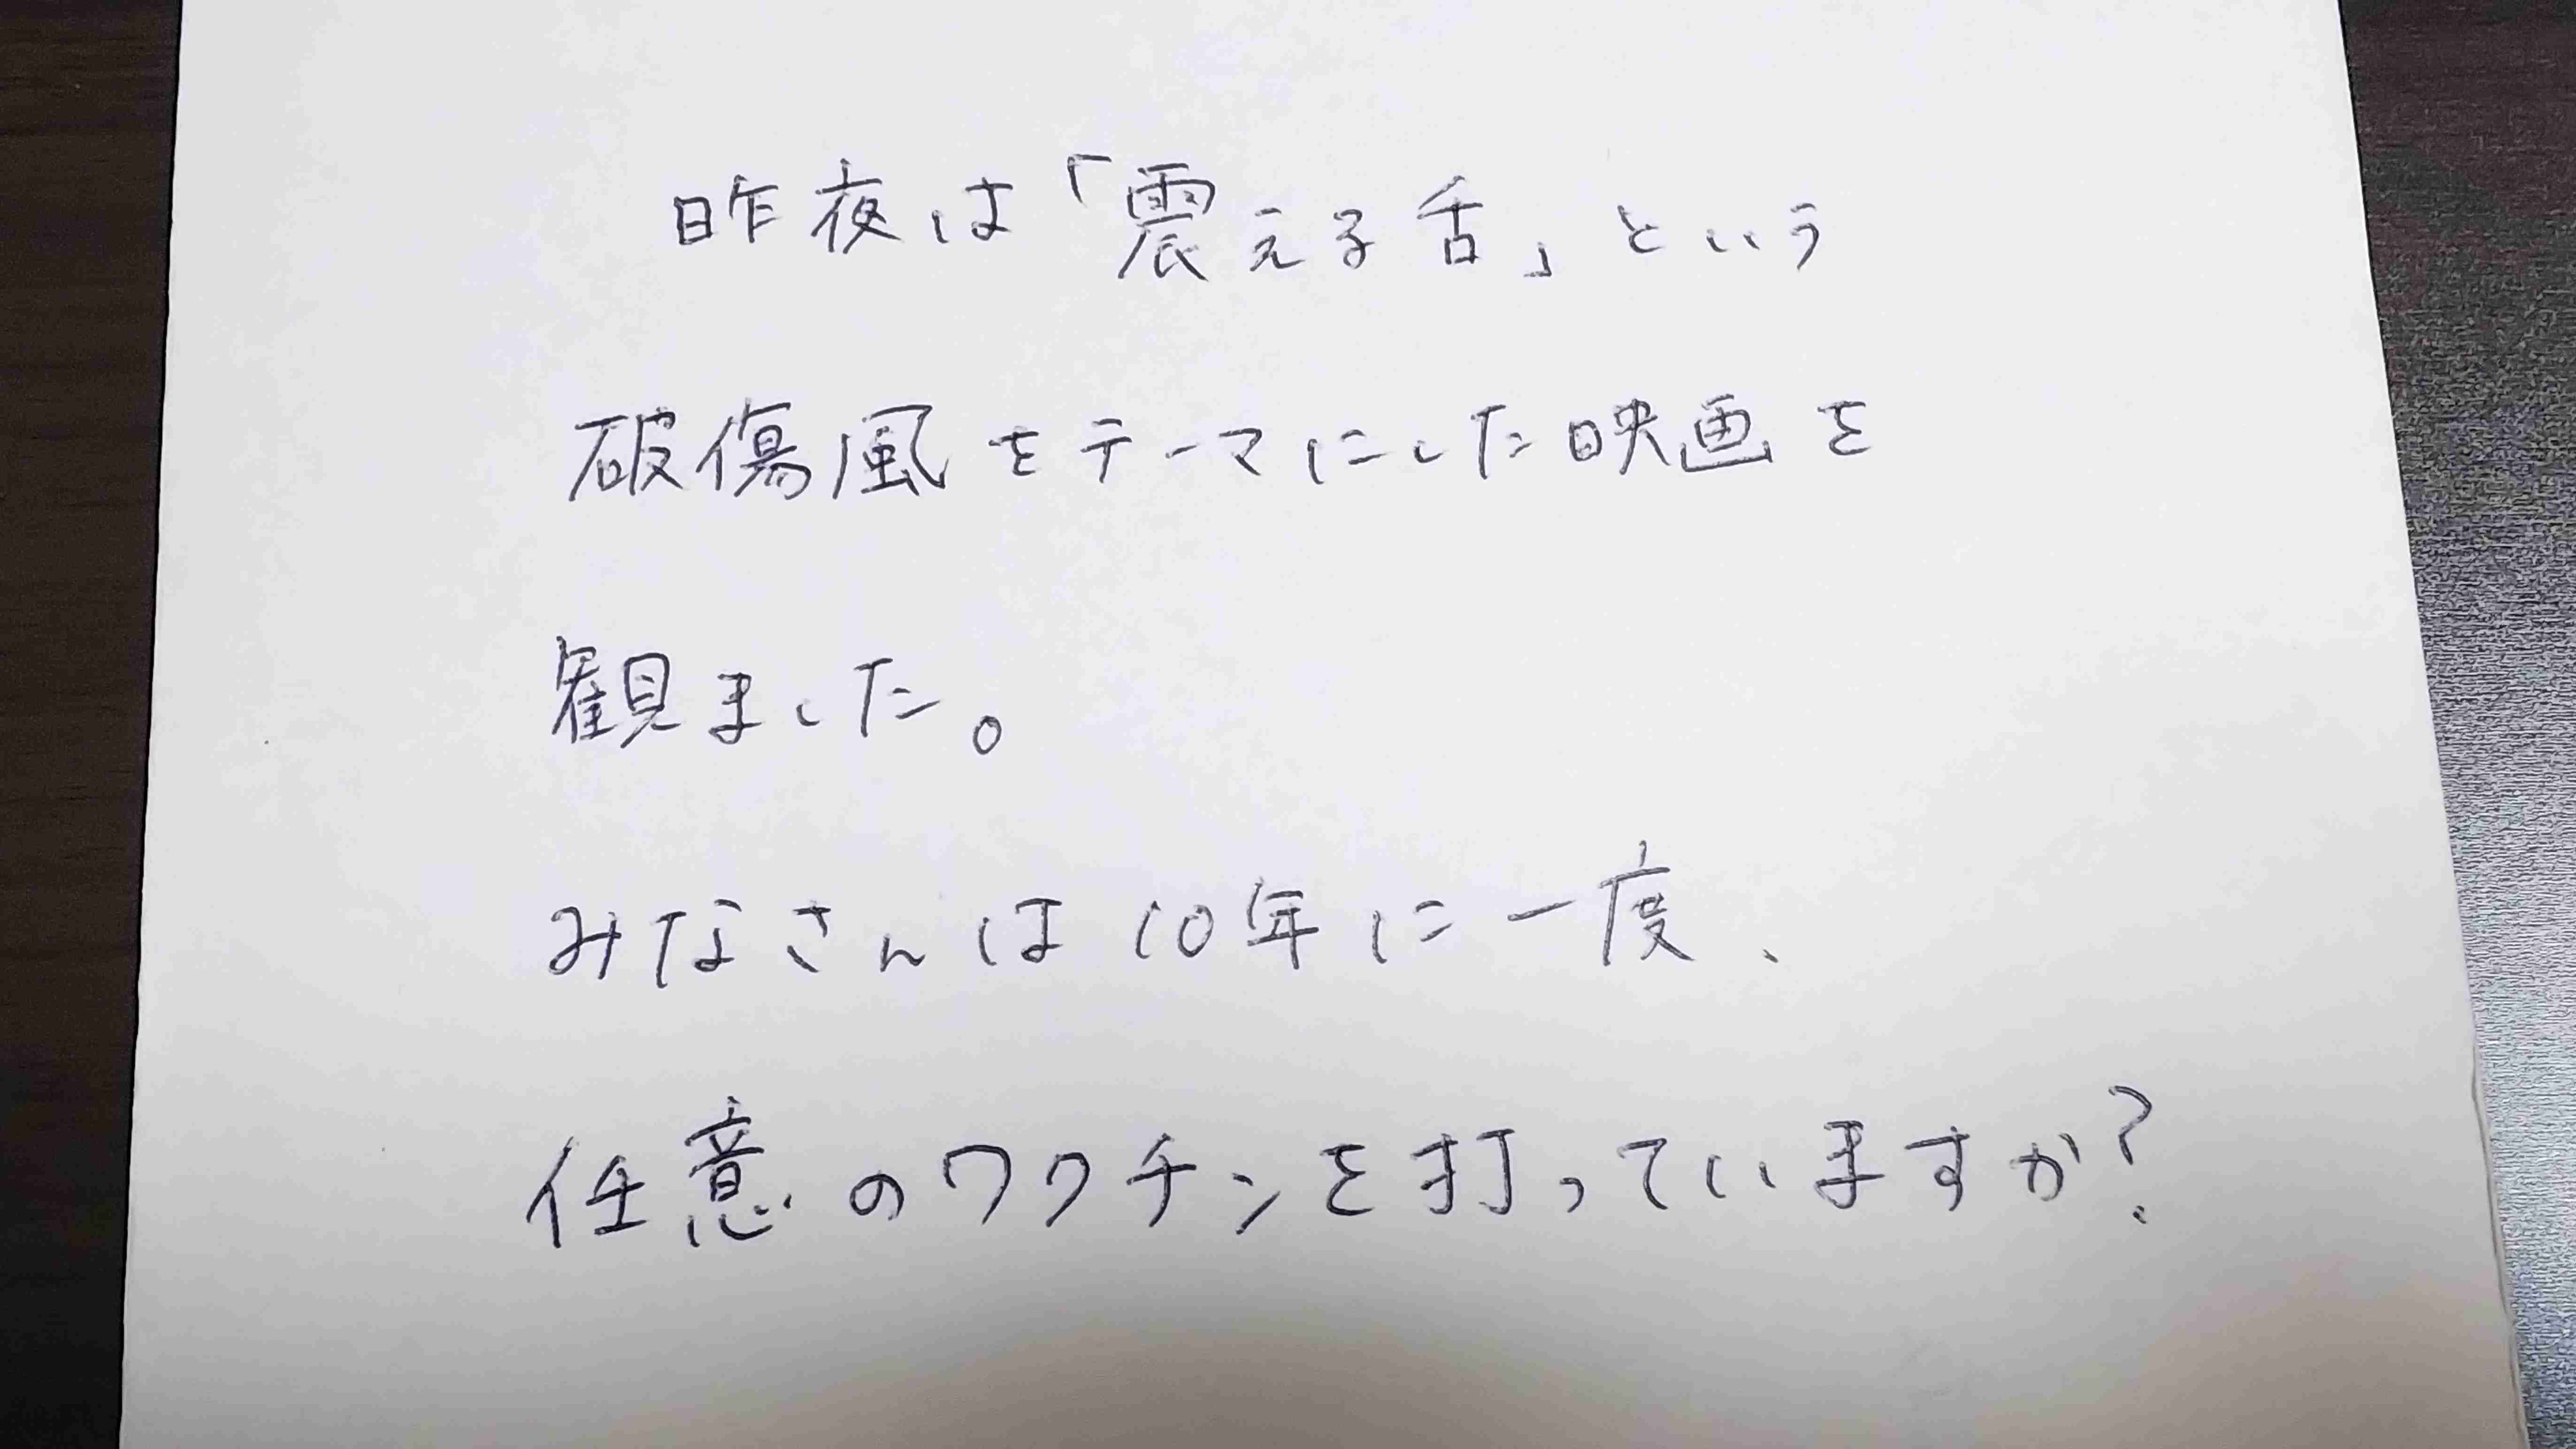 昨夜は「震える舌」という
破傷風をテーマにした映画を
観ました。
みなさんは10年に一度、
任意のワクチンを打っていますか?